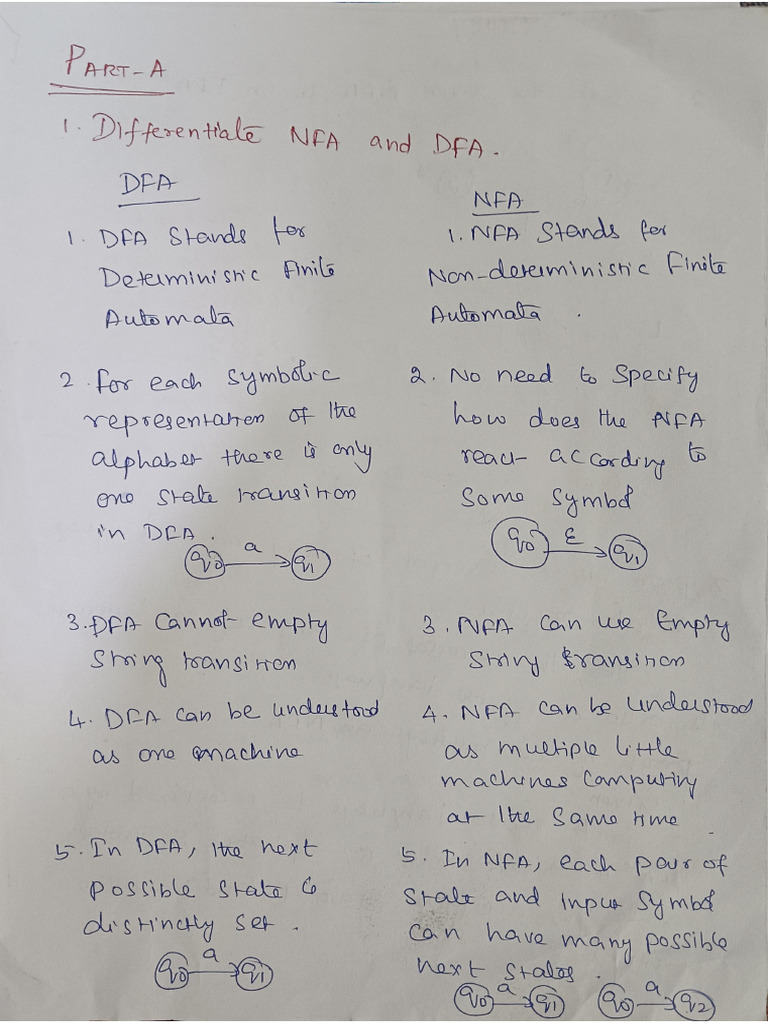 PART-A
1. Differentiate NFA and DFA.
DFA
1. DFA Stands for
Deterministic Finite
Automata
2. for each Symbolic
representation of the
alphabet there is only
one state transition
in DFA.
q0 a q1
3. DFA Cannot empty
String transition
4. DFA can be understood
as one machine
5. In DFA, the next
possible state is
distinctly set.
q0 a q1
NFA
1. NFA Stands for
Non-deterministic Finite
Automata.
2. No need to Specify
how does the NFA
react according to
Some Symbol
q0 ε q1
3. NFA Can use Empty
String transition
4. NFA can be understood
as multiple little
machines Computing
at the Same time.
5. In NFA, each pair of
state and input Symbol
can have many possible
next states.
q0 a q1 q0 a q2